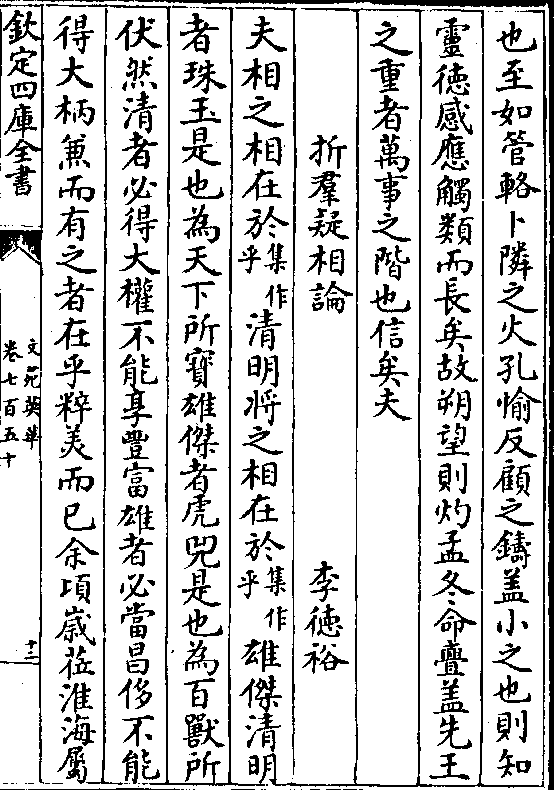 也至如管輅卜隣之火孔愉反顧之鑄盖小之也則知
靈徳感應觸類而長矣故朔望則灼孟冬命舋盖先王
之重者萬事之階也信矣夫
折羣疑相論 李徳裕
夫相之相在於集作乎清明將之相在於集作乎雄傑清明
者珠玉是也為天下所寳雄傑者虎兕是也為百獸所
伏然清者必得大權不能享豐富雄者必當昌侈不能
得大柄兼而有之者在乎粹美而已余頃嵗莅淮海屬
欽定四庫全書
文苑英華
卷七百五十
十三